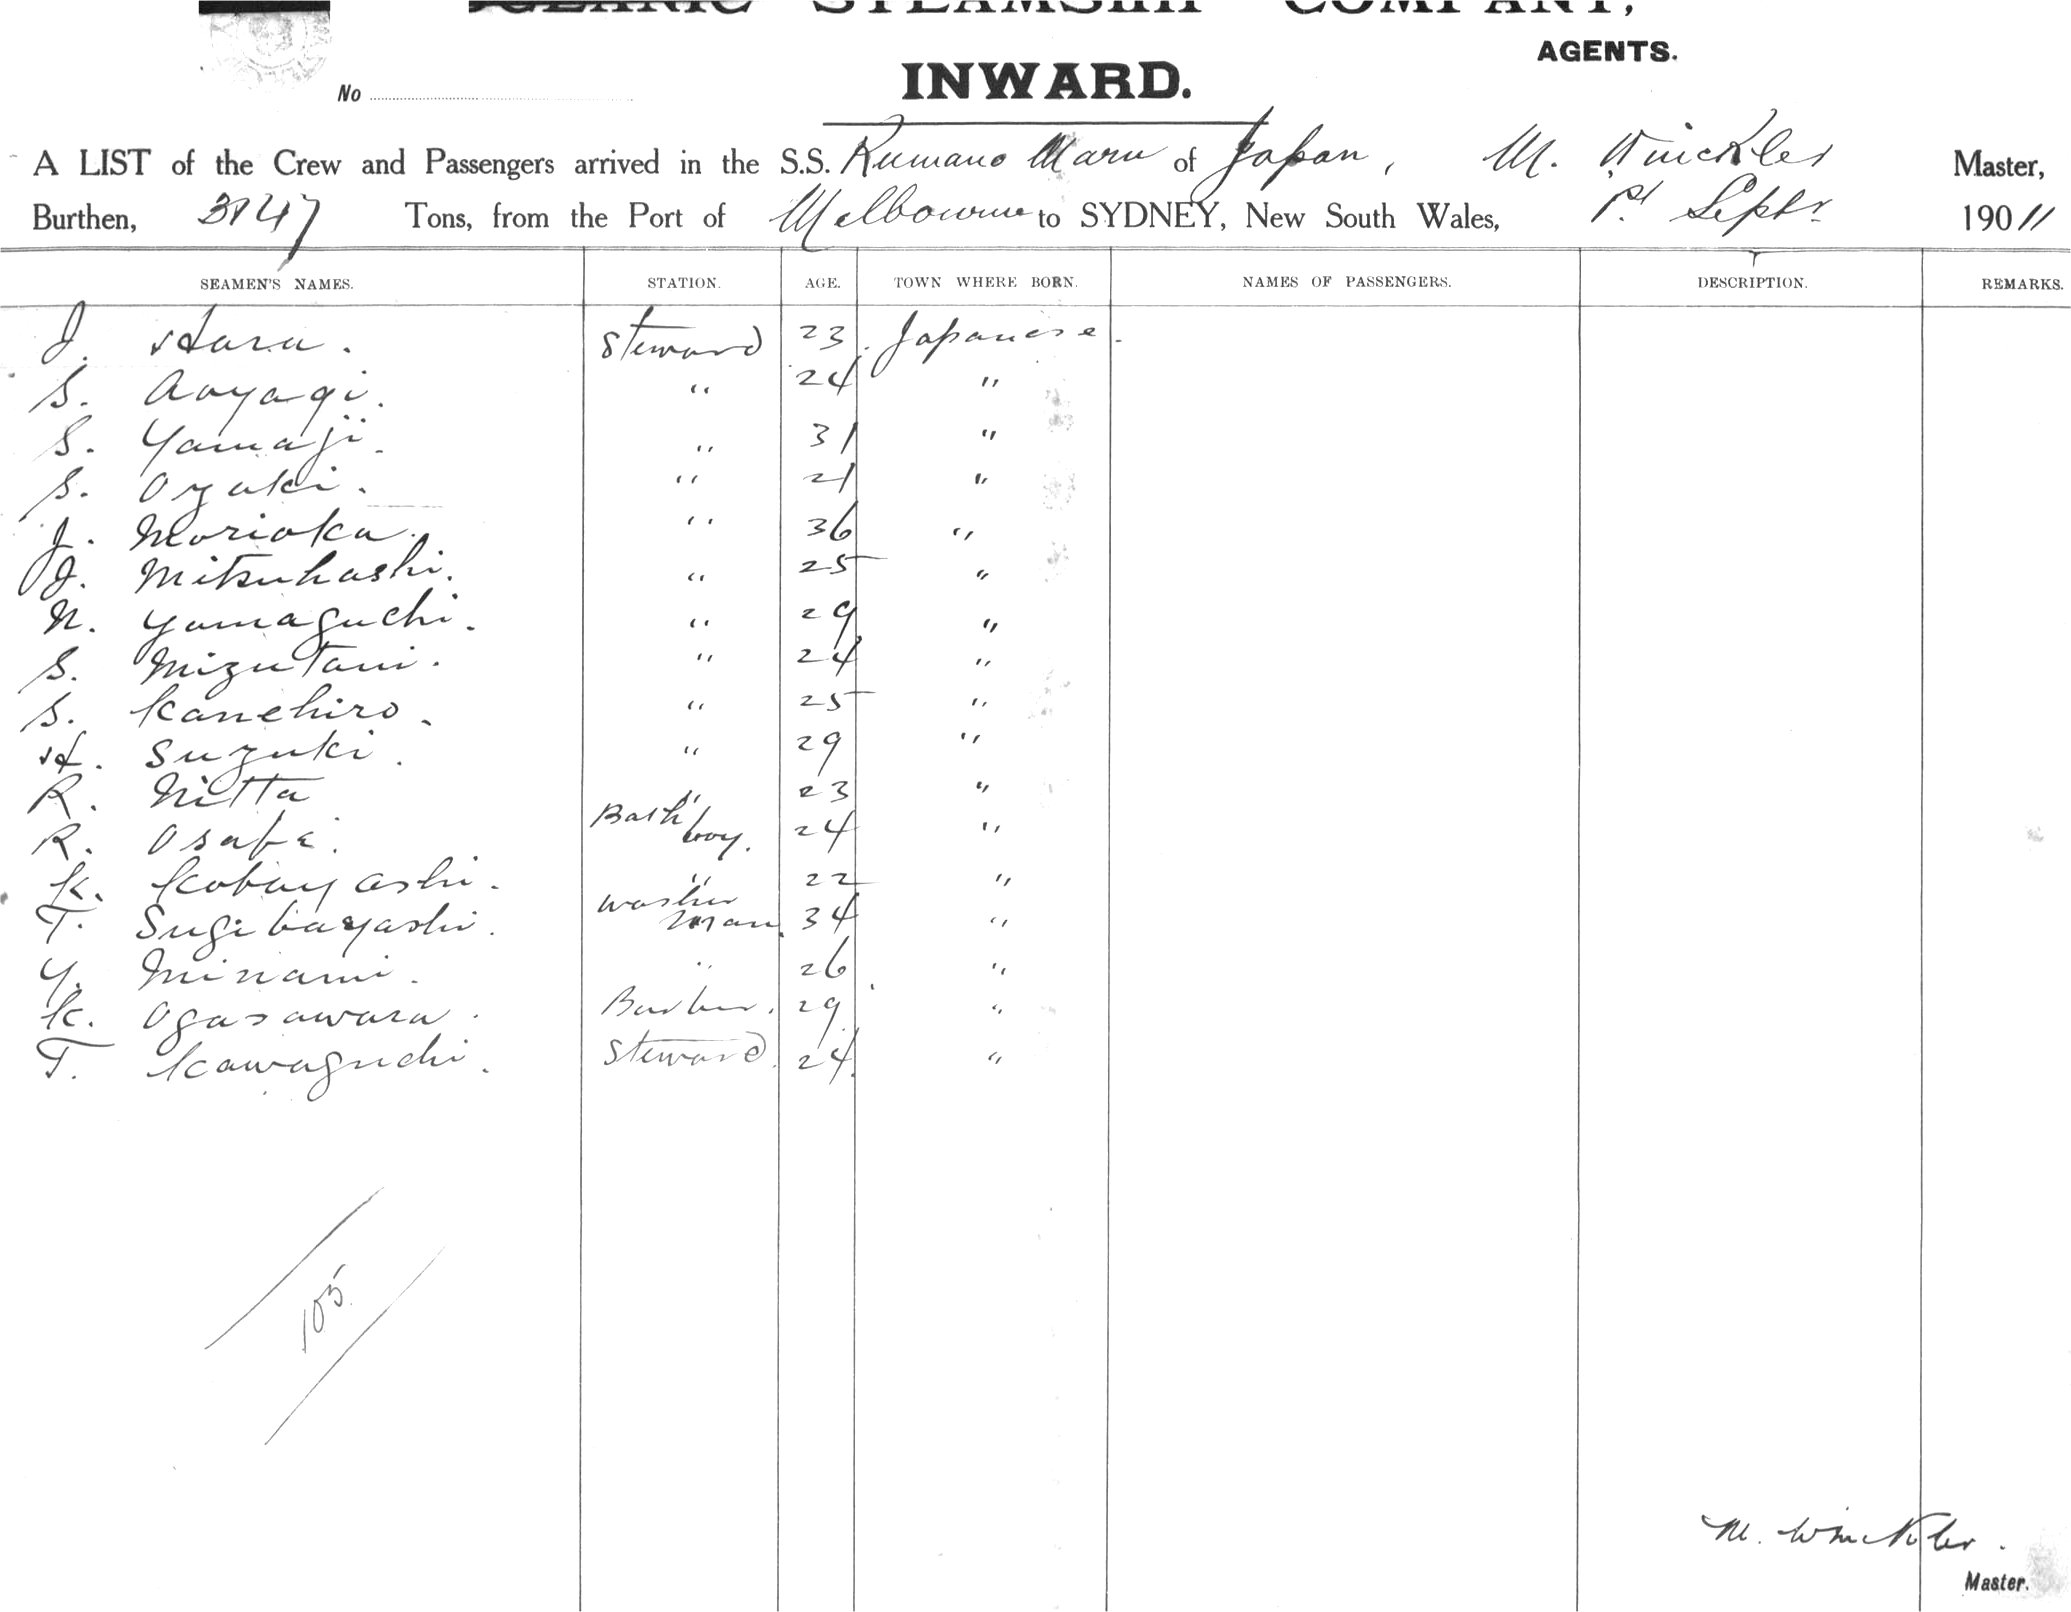 OCEANIC STEAMSHIP COMPANY,
AGENTS.
INWARD.
No
A LIST of the Crew and Passengers arrived in the S.S. Kumano Maru of Japan, M. Winckler Master,
Burthen, 3147 Tons, from the Port of Melbourne to SYDNEY, New South Wales, 1st Septr 190 11
SEAMEN'S NAMES. STATION. AGE. TOWN WHERE BORN. NAMES OF PASSENGERS. DESCRIPTION. REMARKS.
J. Hara. Steward 23. Japanese.
S. Aoyagi. " 24 "
S. Yamaji. " 31 "
S. Ozaki. " 21 "
J. Morioka. " 36 "
J. Mitsuhashi. " 25 "
N. Yamaguchi. " 29 "
S. Mizutani. " 24 "
S. Kanehiro. " 25 "
H. Suzuki. " 29 "
R. Nitta " 23 "
R. Osabe. Bath boy. 24 "
K. Kobayashi. " 22 "
T. Sugibayashi. washer man. 34 "
Y. Minami. " 26 "
K. Ogasawara. Barber. 29 "
T. Kawaguchi. Steward. 24. "
105
M. Winckler.
Master.